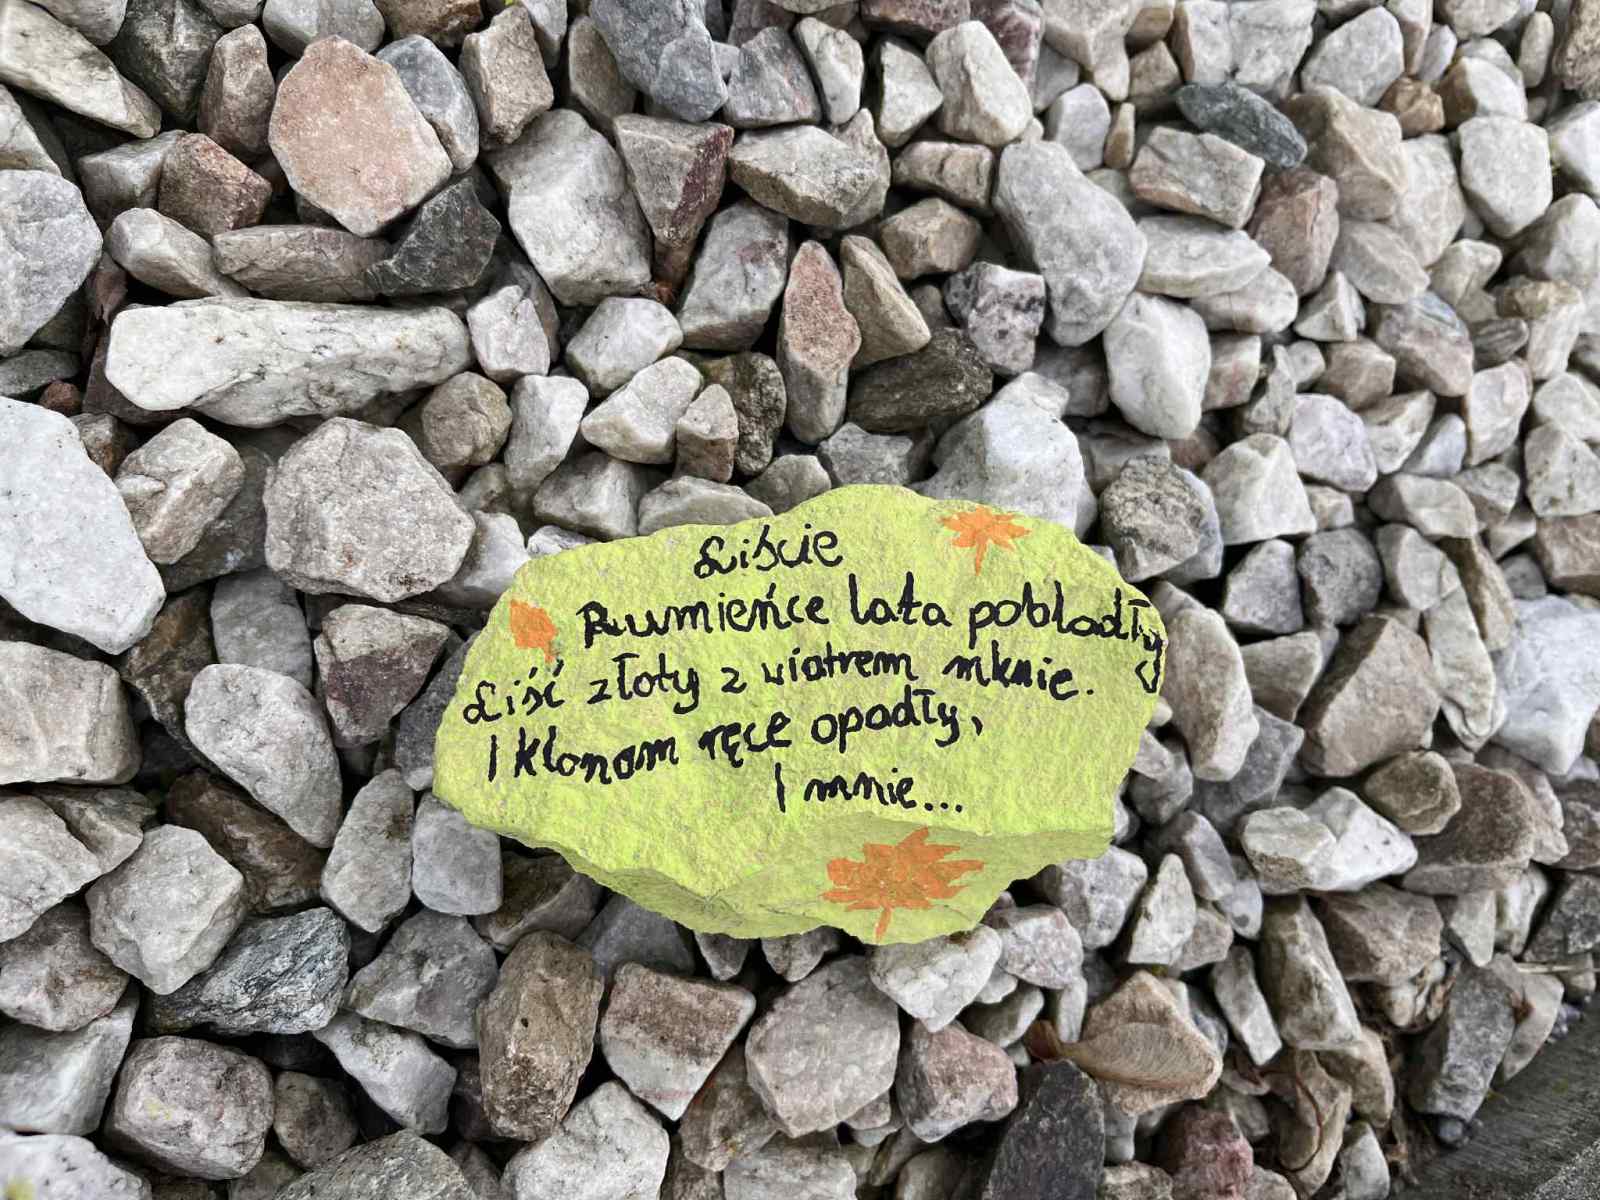 Liście
Rumieńce lata pobladły
Liść złoty z wiatrem mknie.
I klonom ręce opadły,
I mnie...